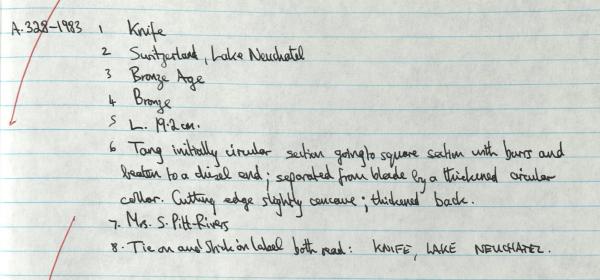 A.328-1983 1 Knife
2 Switzerland, Lake Neuchatel
3 Bronze Age
4 Bronze
5 L. 19.2 cm.
6 Tang initially circular section going to square section with burrs and
beaten to a chisel end; separated from blade by a thickened circular
collar. Cutting edge slightly concave; thickened back.
7. Mrs. S. Pitt-Rivers
8. Tie on and Stick on label both read: KNIFE, LAKE NEUCHATEL.